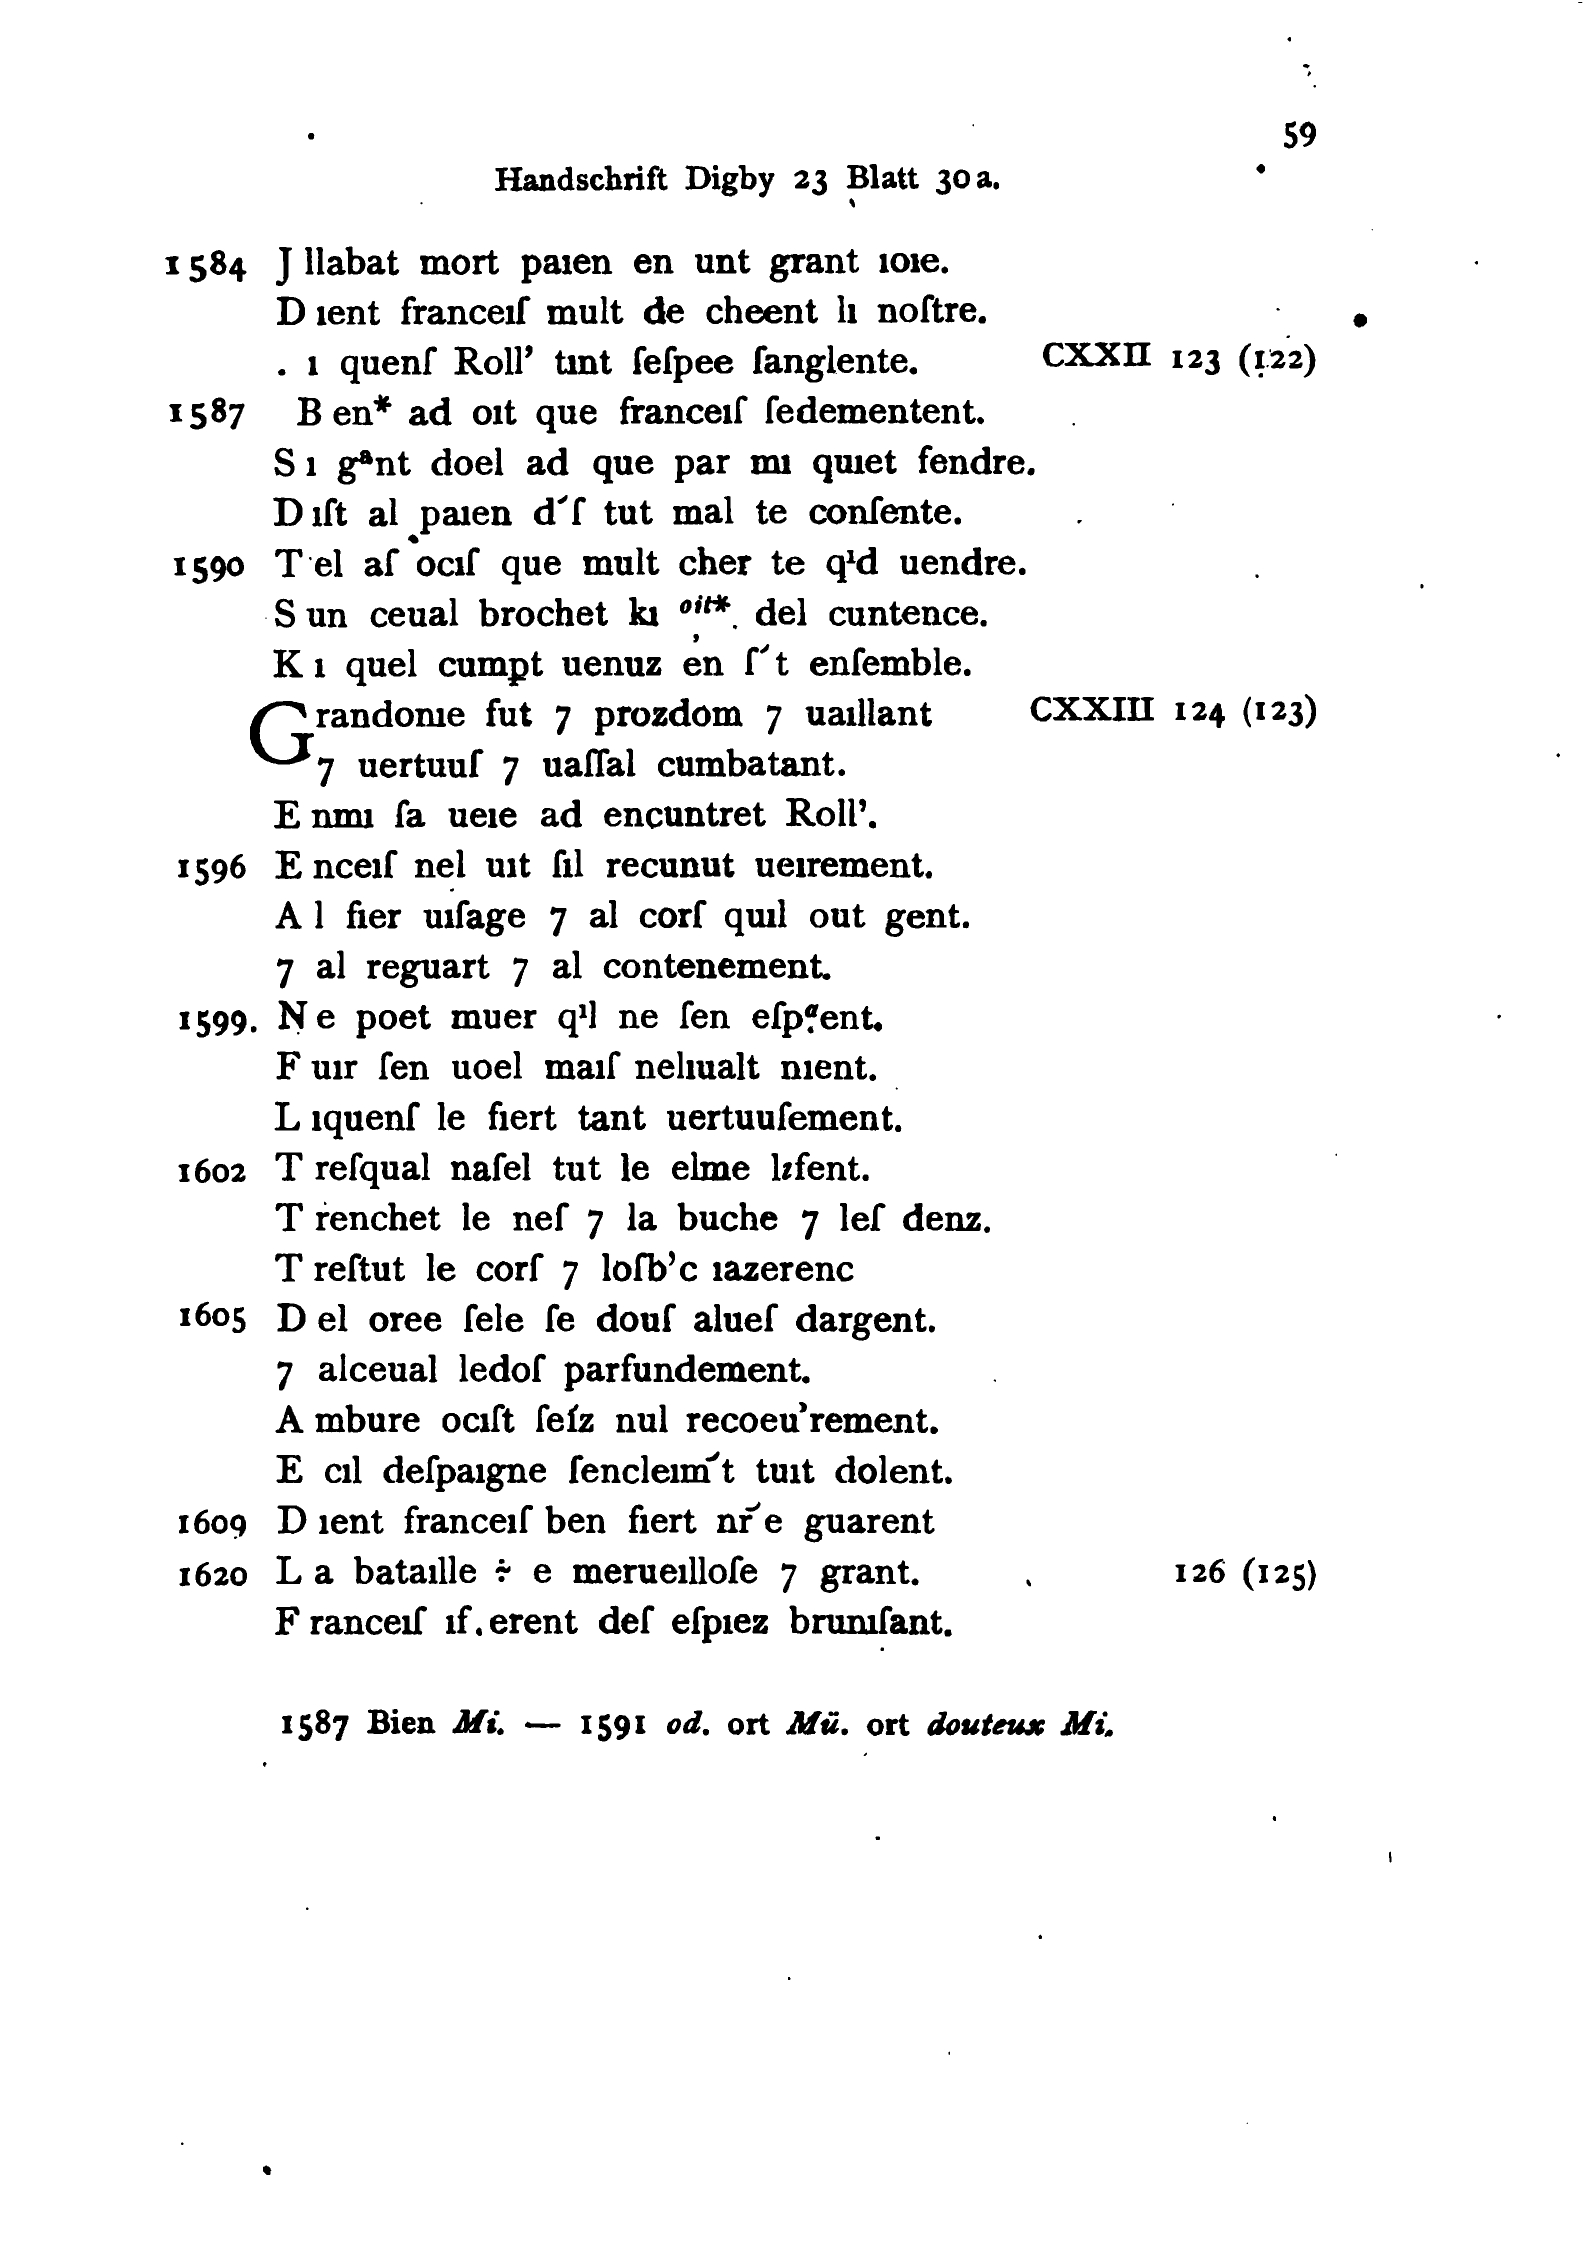 59
Handschrift Digby 23 Blatt 30a.
1584 J llabat mort paıen en unt grant ıoıe.
D ıent franceıſ mult de cheent lı noſtre.
. ı quenſ Roll’ tınt ſeſpee ſanglente. CXXII 123 (122)
1587 B en* ad oıt que franceıſ ſedementent.
S ı gᵃnt doel ad que par mı quıet fendre.
D ıſt al paıen d´ſ tut mal te conſente.
1590 T el aſ ocıſ que mult cher te qⁱd uendre.
S un ceual brochet kı oit*. del cuntence.
K ı quel cumpt uenuz en ſ´t enſemble.
Grandonıe fut 7 prozdom 7 uaıllant CXXIII 124 (123)
7 uertuuſ 7 uaſſal cumbatant.
E nmı ſa ueıe ad encuntret Roll’.
1596 E nceıſ nel uıt ſıl recunut ueırement.
A l fier uıſage 7 al corſ quıl out gent.
7 al reguart 7 al contenement.
1599. N e poet muer qⁱl ne ſen eſpᵃent.
F uır ſen uoel maıſ nelıualt nıent.
L ıquenſ le fiert tant uertuuſement.
1602 T reſqual naſel tut le elme lıfent.
T renchet le neſ 7 la buche 7 leſ denz.
T reſtut le corſ 7 loſb’c ıazerenc
1605 D el oree ſele ſe douſ alueſ dargent.
7 alceual ledoſ parfundement.
A mbure ocıſt ſeíz nul recoeu’rement.
E cıl deſpaıgne ſencleım´t tuıt dolent.
1609 D ıent franceıſ ben fiert nr̄´e guarent
1620 L a bataılle ÷ e merueılloſe 7 grant. 126 (125)
F ranceıſ ıf.erent deſ eſpıez brunıſant.
1587 Bien Mi. — 1591 od. ort Mü. ort douteux Mi.